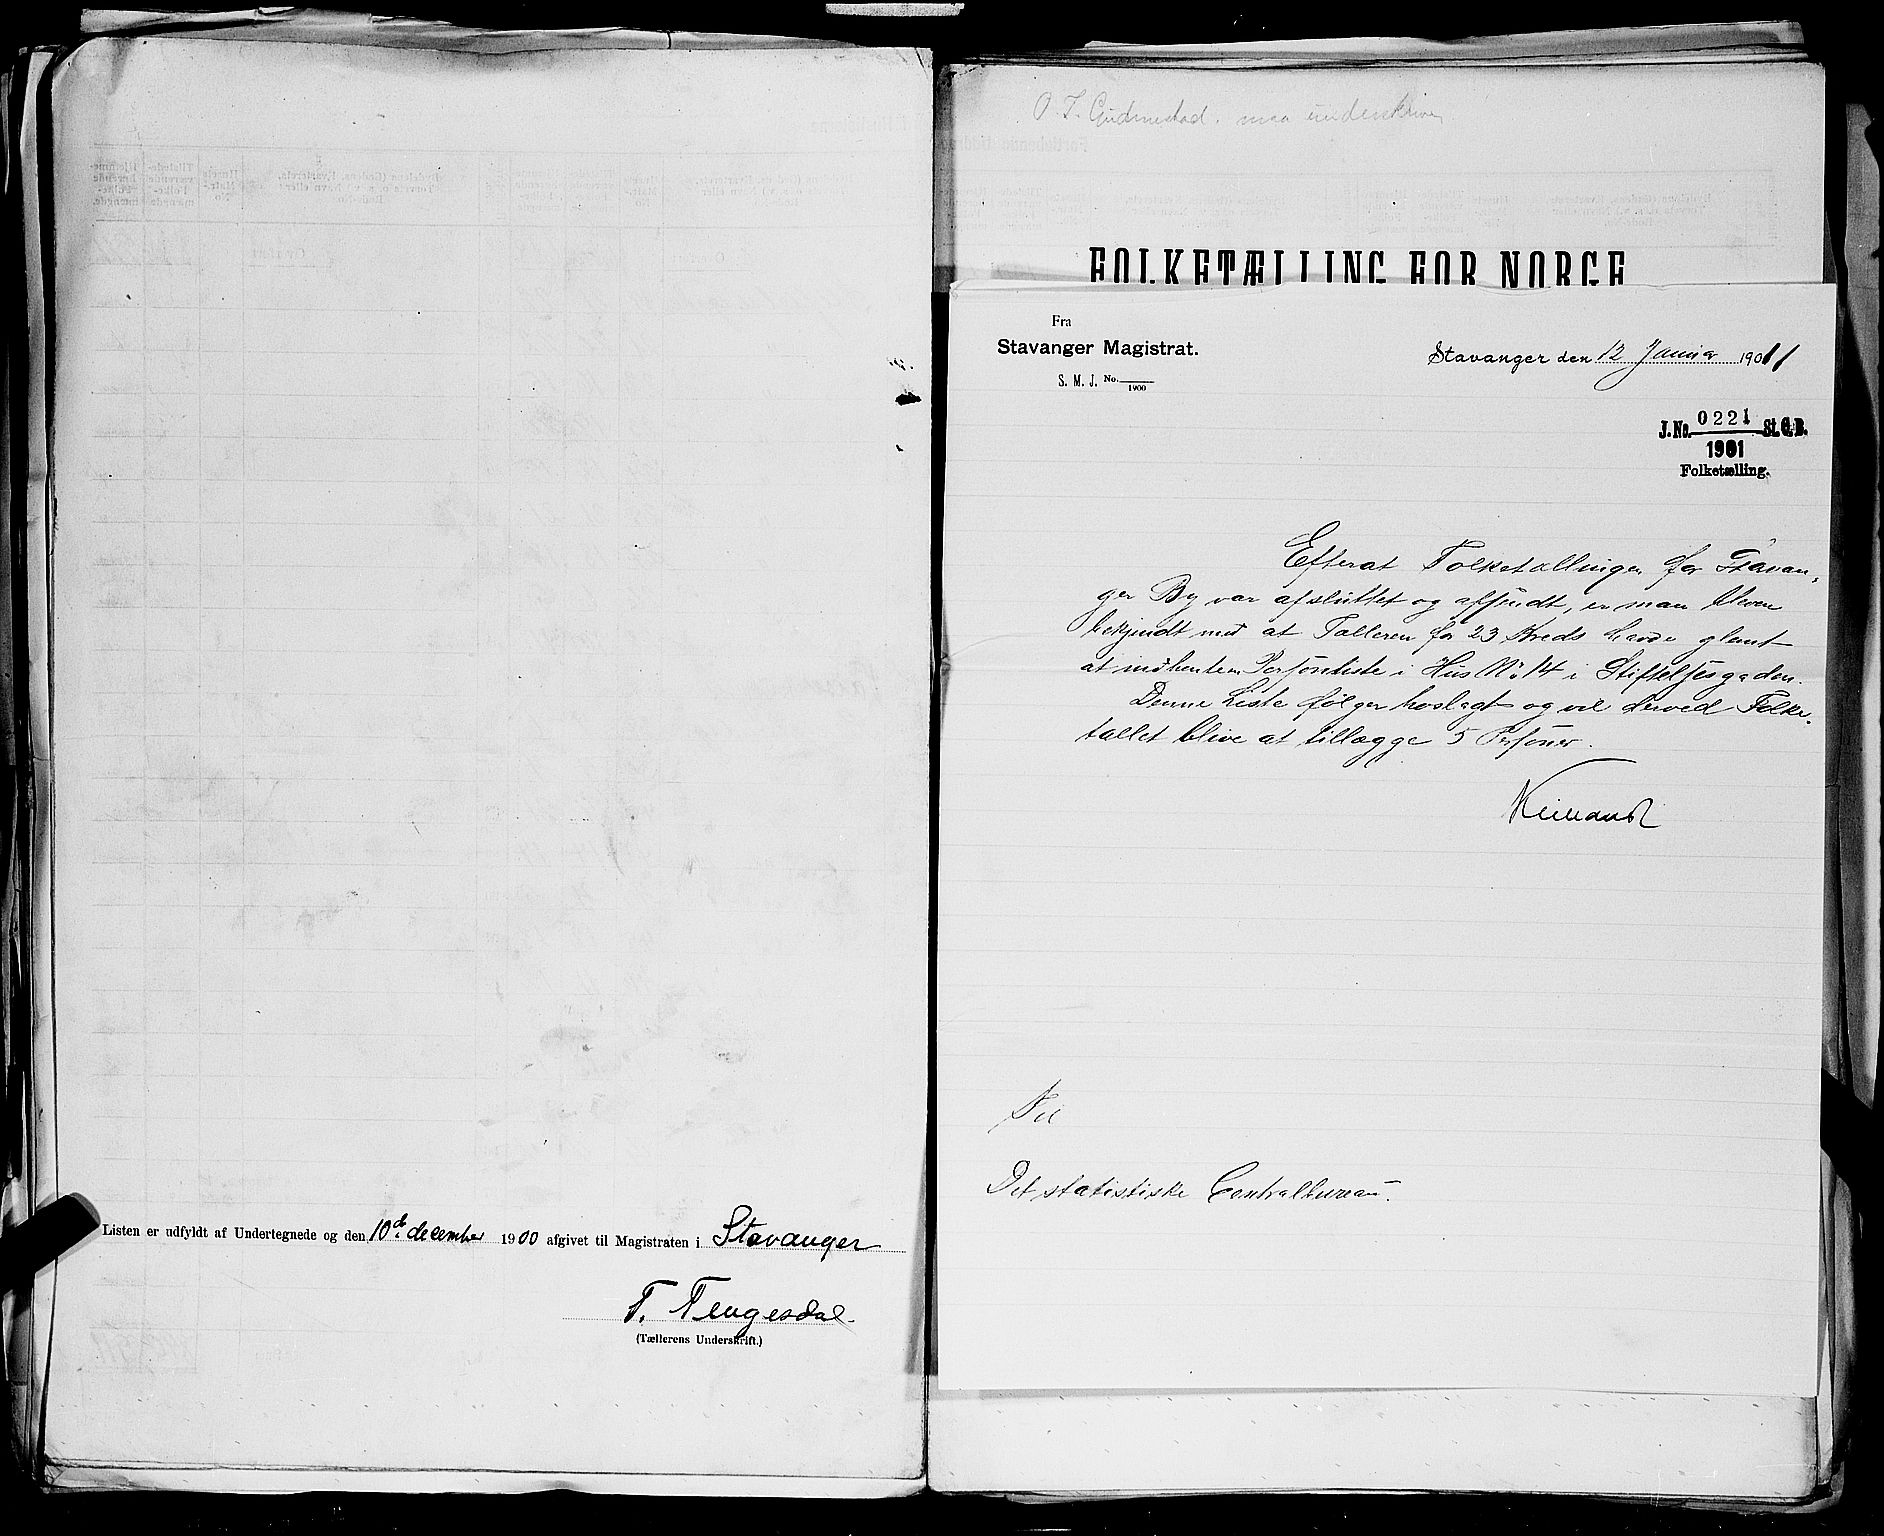 Listen er udfyldt af Undertegnede og den 10de december 1900 afgivet til Magistraten i Stavanger
T. Tengesdal.
(Tællerens Underskrift.)
O. T. Gudmestad. maa underskrive
FOLKETÆLLING FOR NORGE
Fra
Stavanger Magistrat.
S. M. J. No. 1900
Stavanger den 12 Januar 1901
J. No. 0221 St. C. B.
1901
Folketælling.
Efterat Folketællingen for Stavan-
ger By var afsluttet og afsendt, er man bleven
bekjendt med at Tælleren for 23 Kreds havde glemt
at indhente en Personliste i Hus No 14 i Stiftelsesgaden.
Denne Liste følger hoslagt og vil derved Folke-
tallet blive at tillægge 5 Personer.
Kielland
Til
Det statistiske Centralbureau.